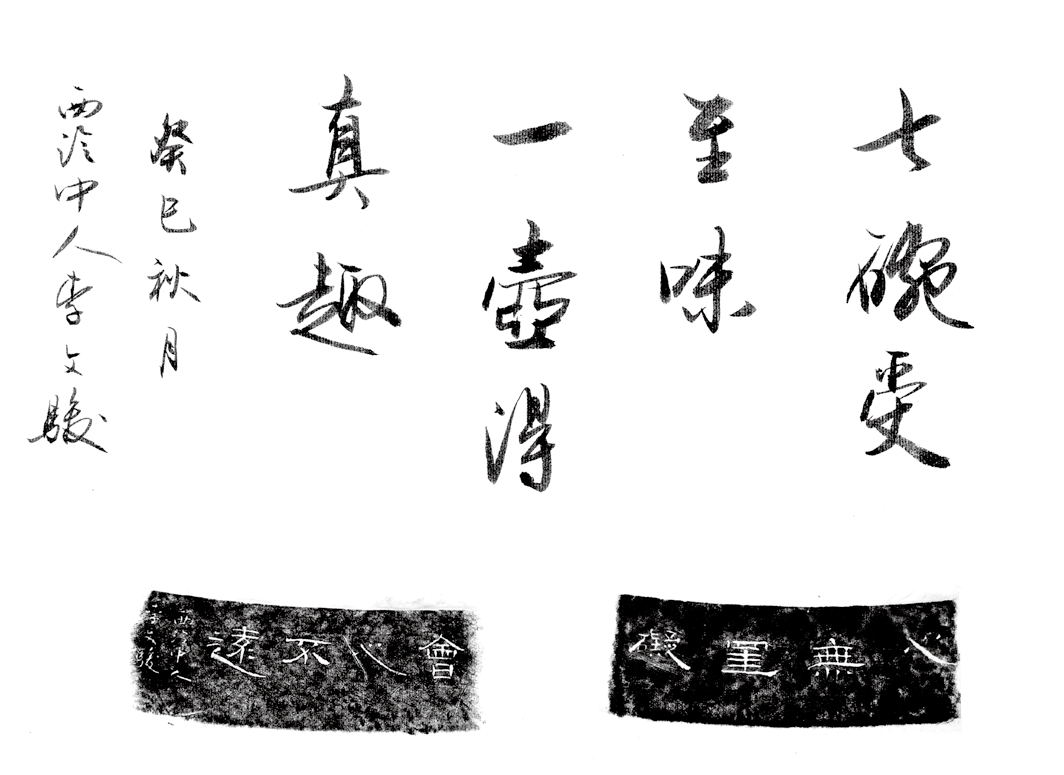 七碗受
至味
一壺得
真趣
癸巳秋月
西泠中人李文駿
心無罣礙
會心不遠
西泠中人
李文駿